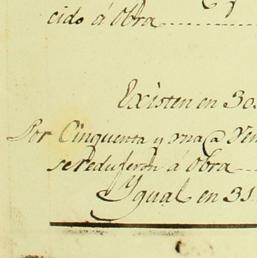 cido á obra
Existen en 30
Por Cinquenta y una a
se reduferon á obra
Ygual en 31